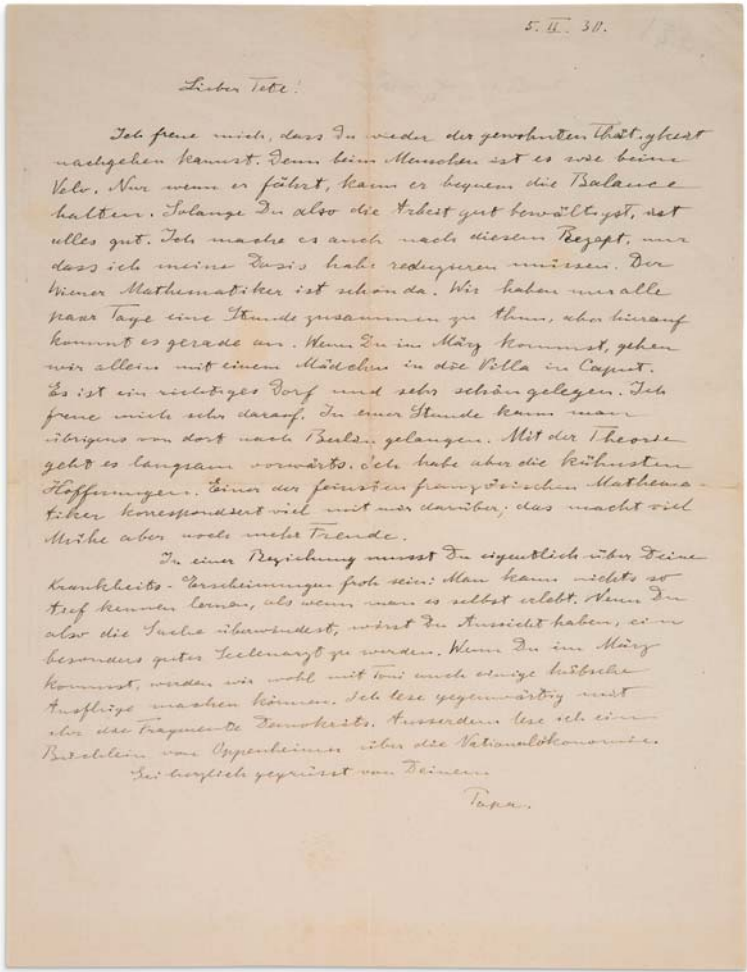 5. II. 30.
Lieber Tete!
Ich freue mich, dass Du wieder der gewohnten Thätigkeit
nachgehen kannst. Denn beim Menschen ist es wie beim
Velo. Nur wenn er fährt, kann er bequem die Balance
halten. Solange Du also die Arbeit gut bewältigst, ist
alles gut. Ich mache es auch nach diesem Rezept, nur
dass ich meine Dosis habe reduzieren müssen. Der
Wiener Mathematiker ist schon da. Wir haben nur alle
paar Tage eine Stunde zusammen zu thun, aber hierauf
kommt es gerade an. Wenn Du im März kommst, gehen
wir allein mit einem Mädchen in die Villa in Caput.
Es ist ein richtiges Dorf und sehr schön gelegen. Ich
freue mich sehr darauf. In einer Stunde kann man
übrigens von dort nach Berlin gelangen. Mit der Theorie
geht es langsam vorwärts. Ich habe aber die kühnsten
Hoffnungen. Einer der feinsten französischen Mathema-
tiker korrespondiert viel mit mir darüber; das macht viel
Mühe aber noch mehr Freude.
In einer Beziehung musst Du eigentlich über Deine
Krankheits-Erscheinungen froh sein: Man kann nichts so
tief kennen lernen, als wenn man es selbst erlebt. Wenn Du
also die Sache überwindest, wirst Du Aussicht haben, ein
besonders guter Seelenarzt zu werden. Wenn Du im März
kommst, werden wir wohl mit Toni auch einige hübsche
Ausflüge machen können. Ich lese gegenwärtig mit
ihr die Fragmente Demokrits. Ausserdem lese ich ein
Büchlein von Oppenheimer über die Nationalökonomie.
Sei herzlich gegrüsst von Deinem
Papa.